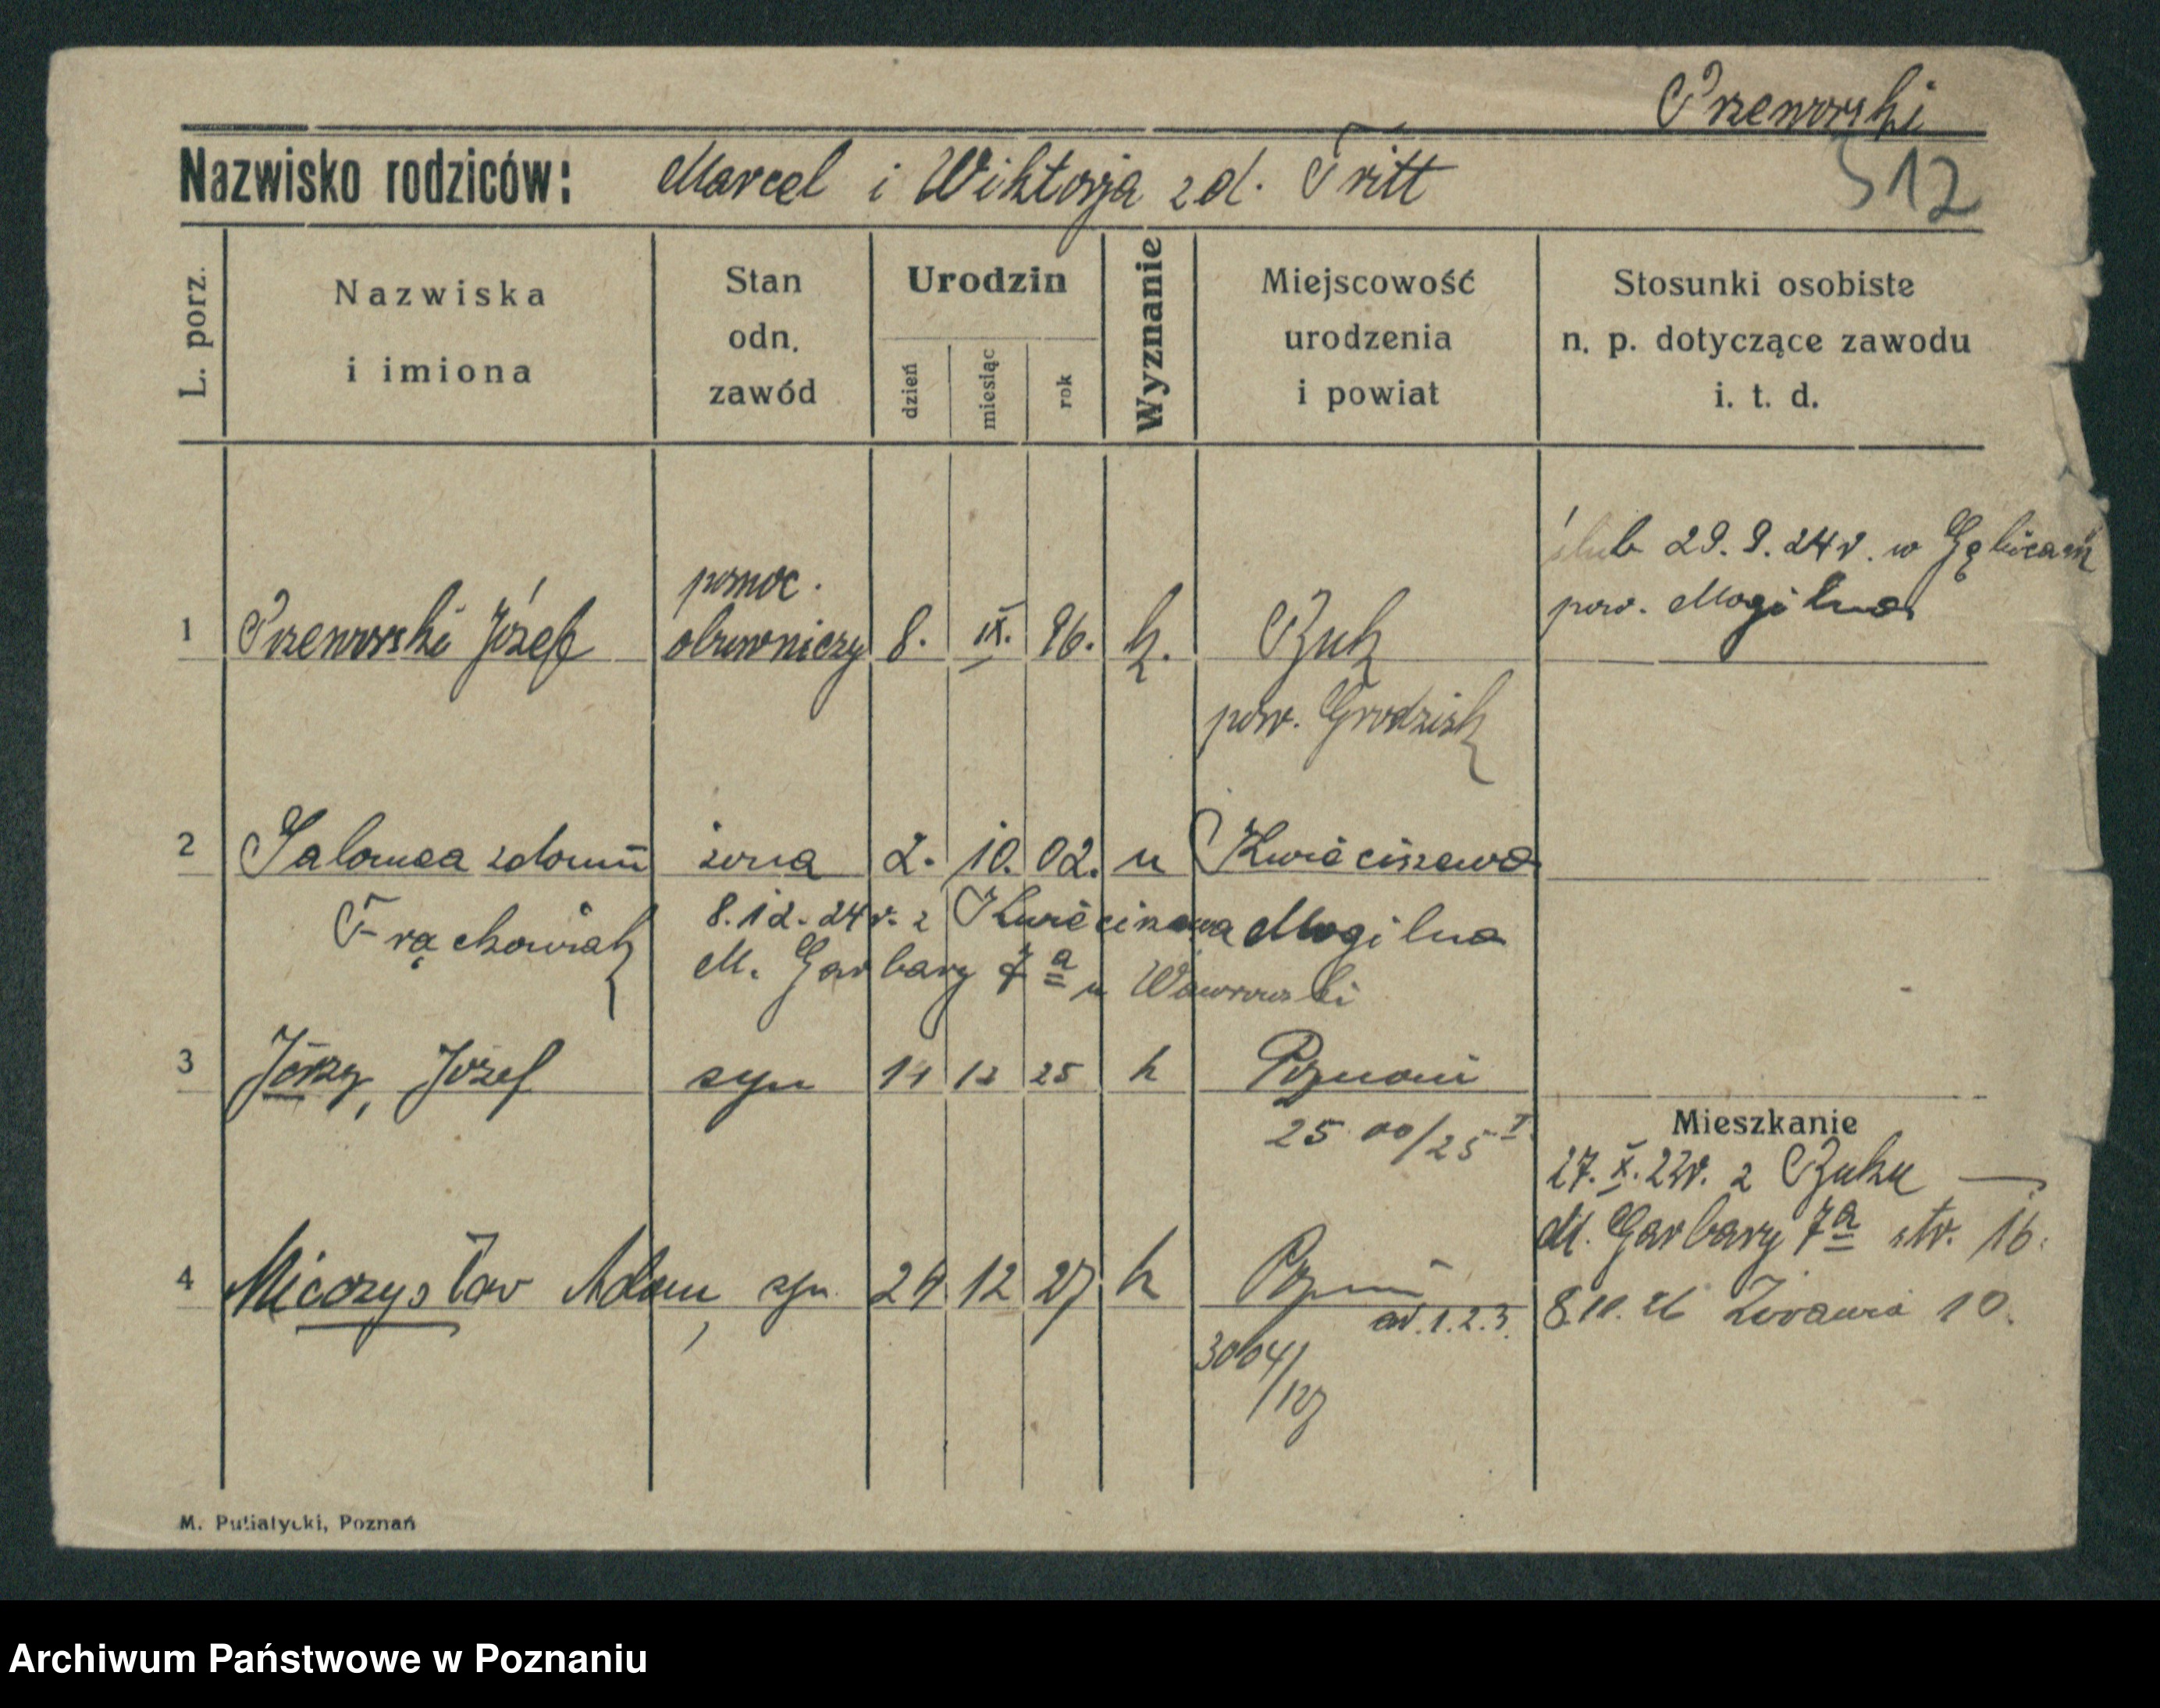 Przeworski
512
Nazwisko rodziców: Marcel i Wiktorja z d. Tritt
L. porz.
Nazwiska
i imiona
Stan
odn.
zawód
Urodzin
dzień
miesiąc
rok
Wyznanie
Miejscowość
urodzenia
i powiat
Stosunki osobiste
n. p. dotyczące zawodu
i. t. d.
ślub 29. 9. 24 r. w Gębicach
pow. Mogilno
pomoc.
1 Przeworski Józef obuwniczy 8. IX. 96. k. Buk
pow. Grodzisk
2 Salomea z domu żona 2. 10. 02. " Kwieciszewo
Frąckowiak 8. 12. 24 r. z Kwieciszewa Mogilno
M. Garbary 7a u Wawrowski
3 Jerzy, Józef syn 14 12 25 k Poznań
25 00/25 I
Mieszkanie
27. X. 22r. z Buku
M. Garbary 7a str. 16.
4 Mieczysław Adam, syn 24 12 27 k Pozn
ad. 1. 2. 3.
8.10.26 Żórawia 10.
3004/127
M. Putiatycki, Poznań
Archiwum Państwowe w Poznaniu